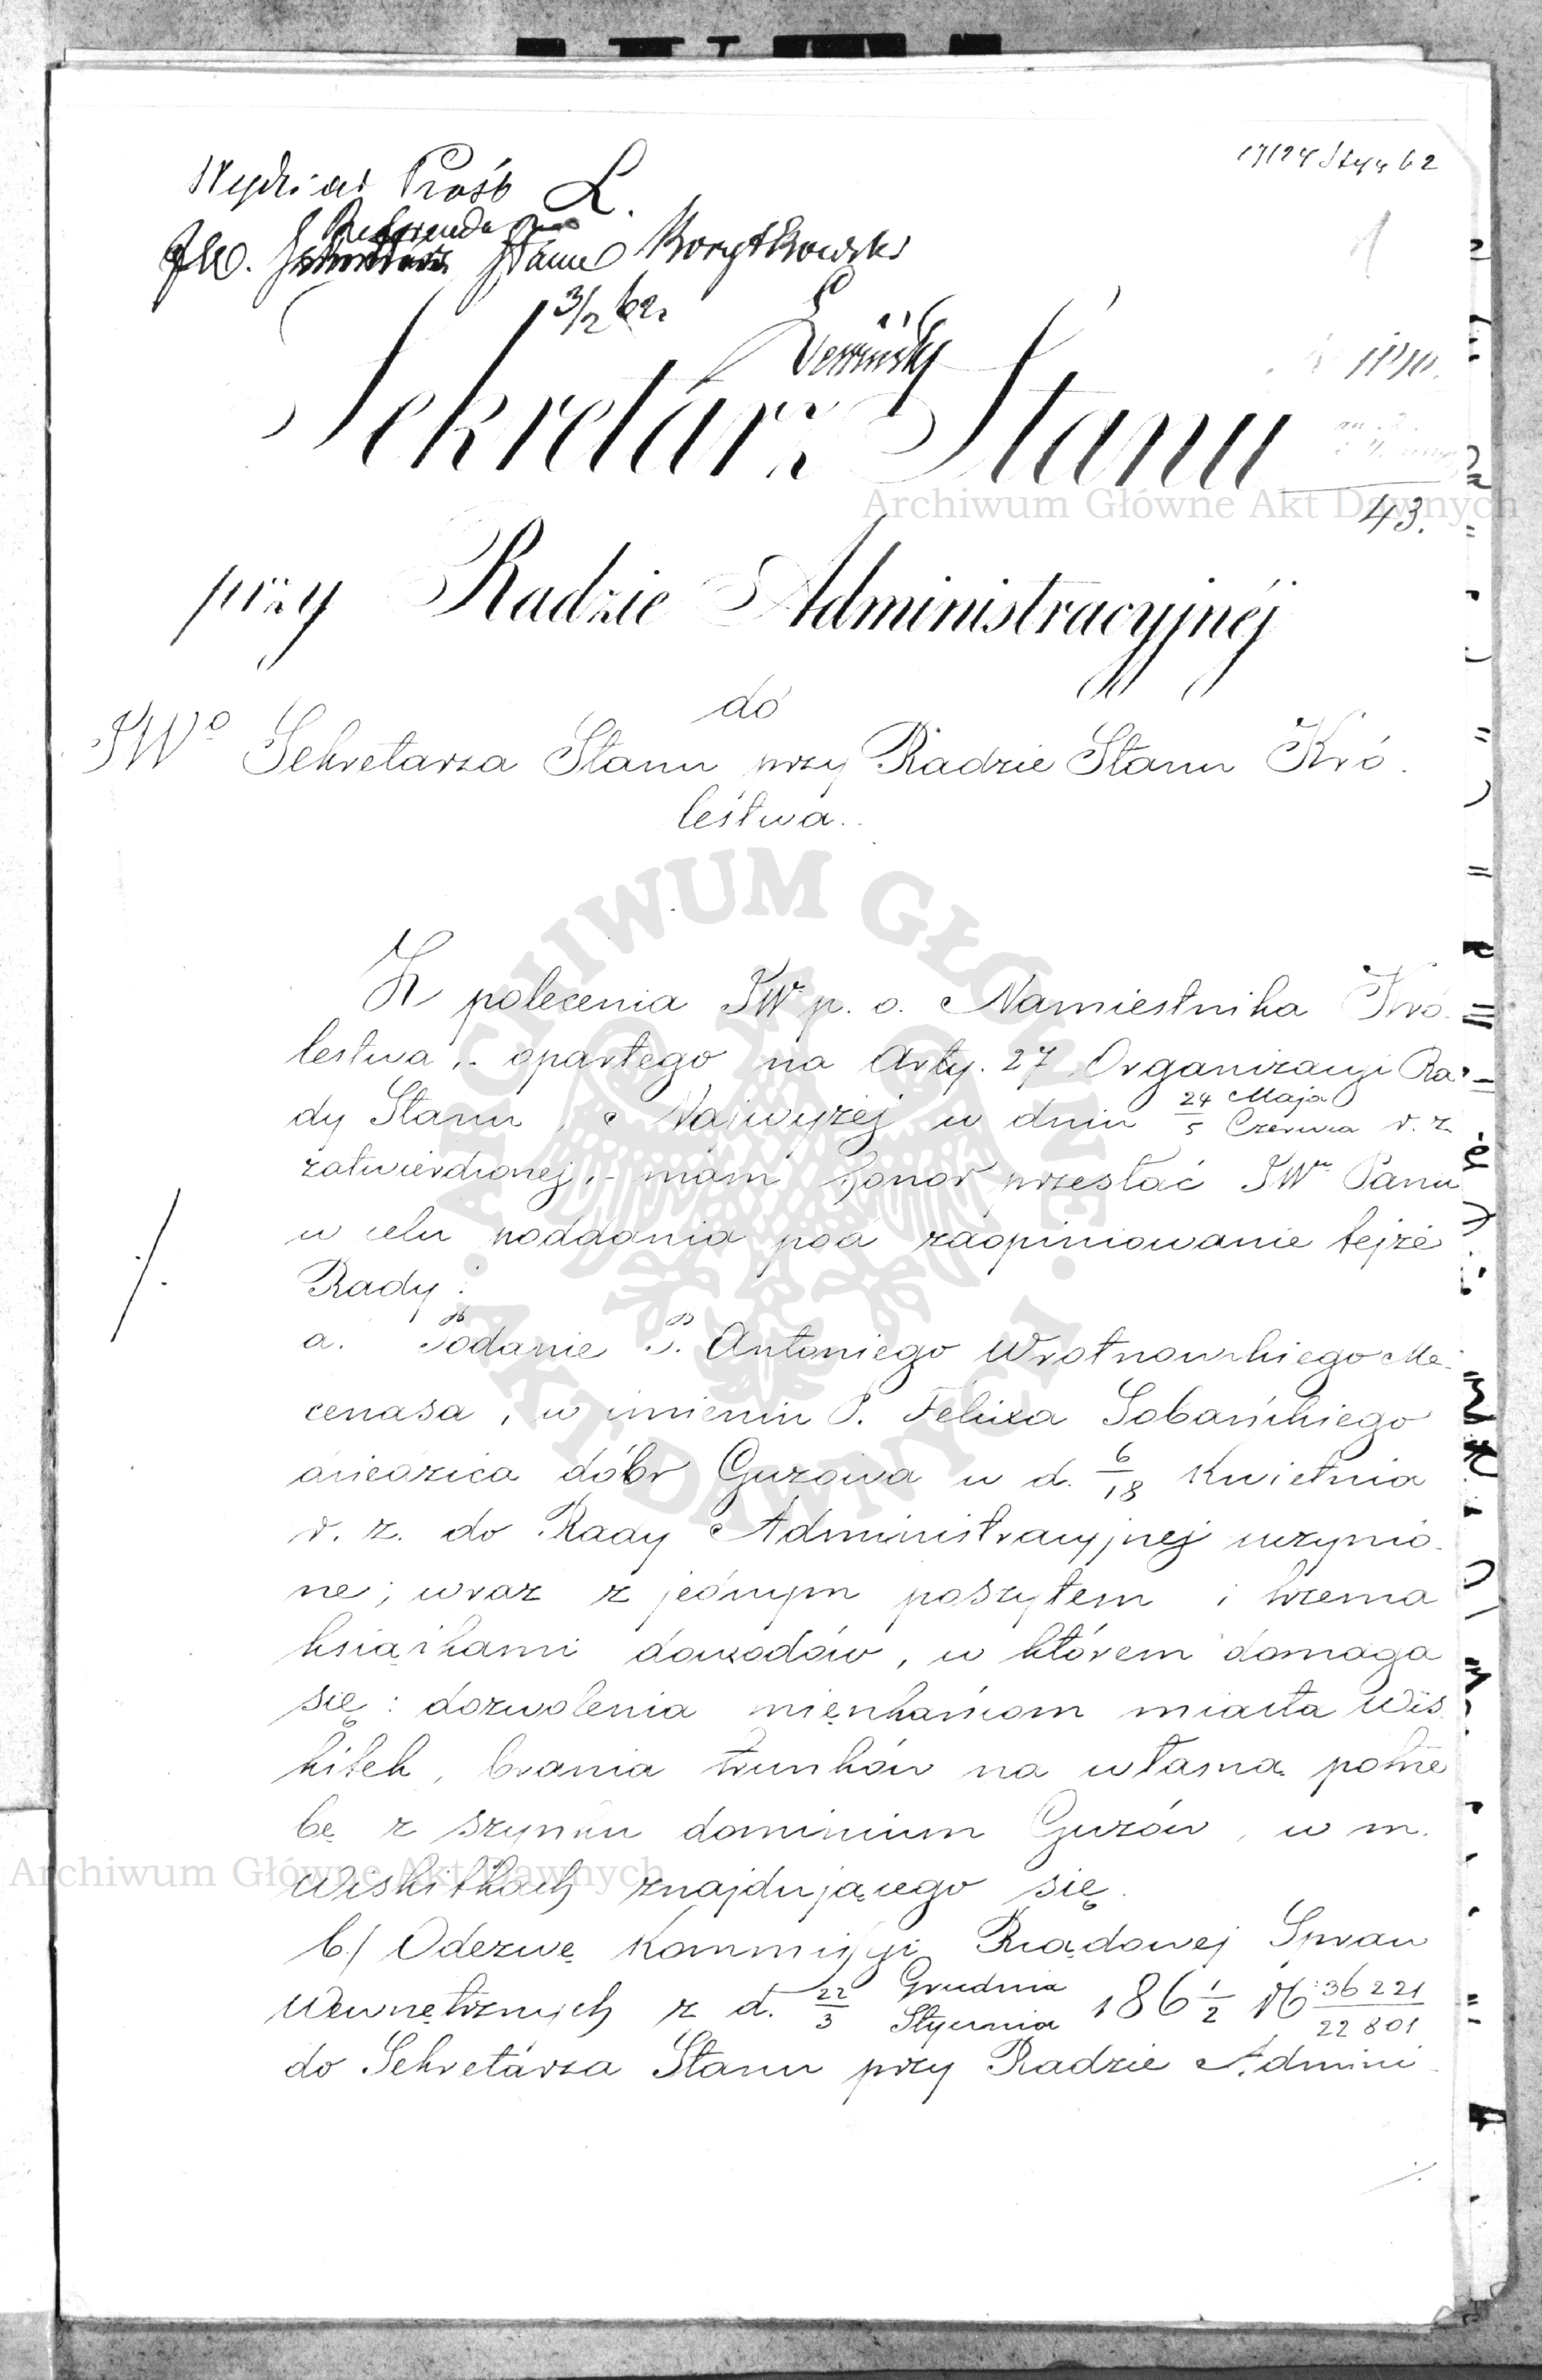 Wydział Próśb L.
17/29 Stycz 62
1
Referendarz
JW. Stanu Korytkowski
3/2 62.
Sekretarz Stanu
43.
przy Radzie Administracyjnéj
do
JWo Sekretarza Stanu przy Radzie Stanu Kró-
lestwa.
Z polecenia JW. p. o. Namiestnika Kró-
lestwa, opartego na Arty. 27 Organizacyi Ra-
dy Stanu, Najwyżej w dniu 24 Maja / 5 Czerwca r. z.
zatwierdzonej, - mam honor przesłać JW. Panu
w celu poddania pod zaopiniowanie tejże
Rady:
a. Podanie P. Antoniego Wrotnowskiego Me-
cenasa, w imieniu P. Felixa Sobańskiego
dziedzica dóbr Guzowa w d. 6/18 Kwietnia
r. z. do Rady Administracyjnej uczynio-
ne; wraz z jednym poszytem i trzema
książkami dowodów, w którem domaga
się: dozwolenia mieszkańcom miasta Wis-
kitek, brania trunków na własną potrze
bę z szynku dominium Guzów, w m.
Wiskitkach znajdującego się.
b/ Odezwę Kommissyi Rządowej Spraw
Wewnętrznych z d. 22 Grudnia / 3 Stycznia 186 1/2 № 36221/22801
do Sekretarza Stanu przy Radzie Admini-
Archiwum Główne Akt Dawnych
ARCHIWUM GŁÓWNE
AKT DAWNYCH
Archiwum Główne Akt Dawnych